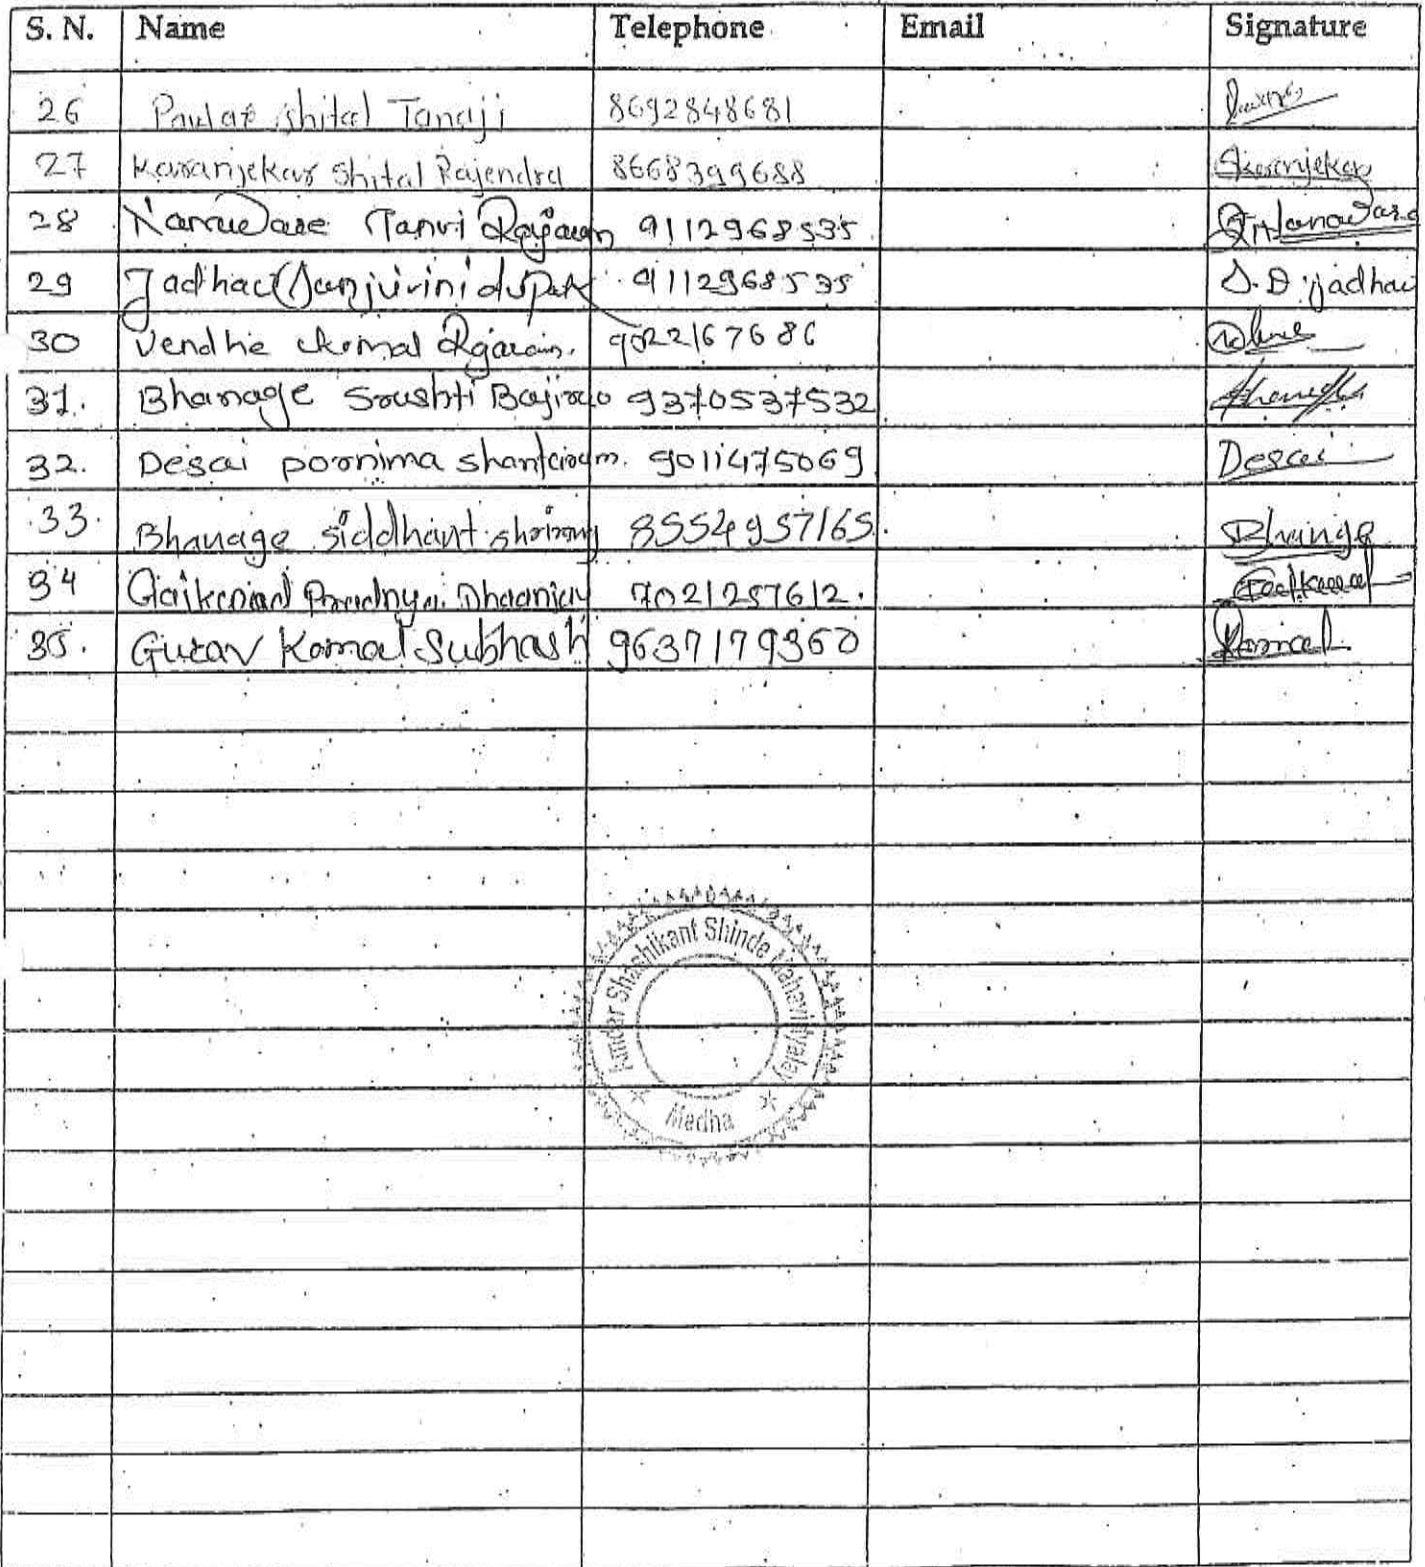 S. N. Name Telephone Email Signature
26 shital Tanaji 8692848681
27 Karanjekar Shital Rajendra 8668399688 Skaranjekar
28 Tanvi Rajaram 9112968535
29 Jadhav Sanjivini dipak 9112968535 S.D.jadhav
30 Vendhe Komal Rajaram. 9022167686
31. Bhanage Srushti Bajirao 9370537532
32. Desai poornima shantaram. 9011475069 Desai
33. Bhanage siddhant shrirang 8554957165.
34 Gaikwad Pradnya Dhananjay 7021257612. Gaikwad
35. Gurav Komal Subhash 9637179360 Komal
Amdar Shashikant Shinde Mahavidyalay
Medha